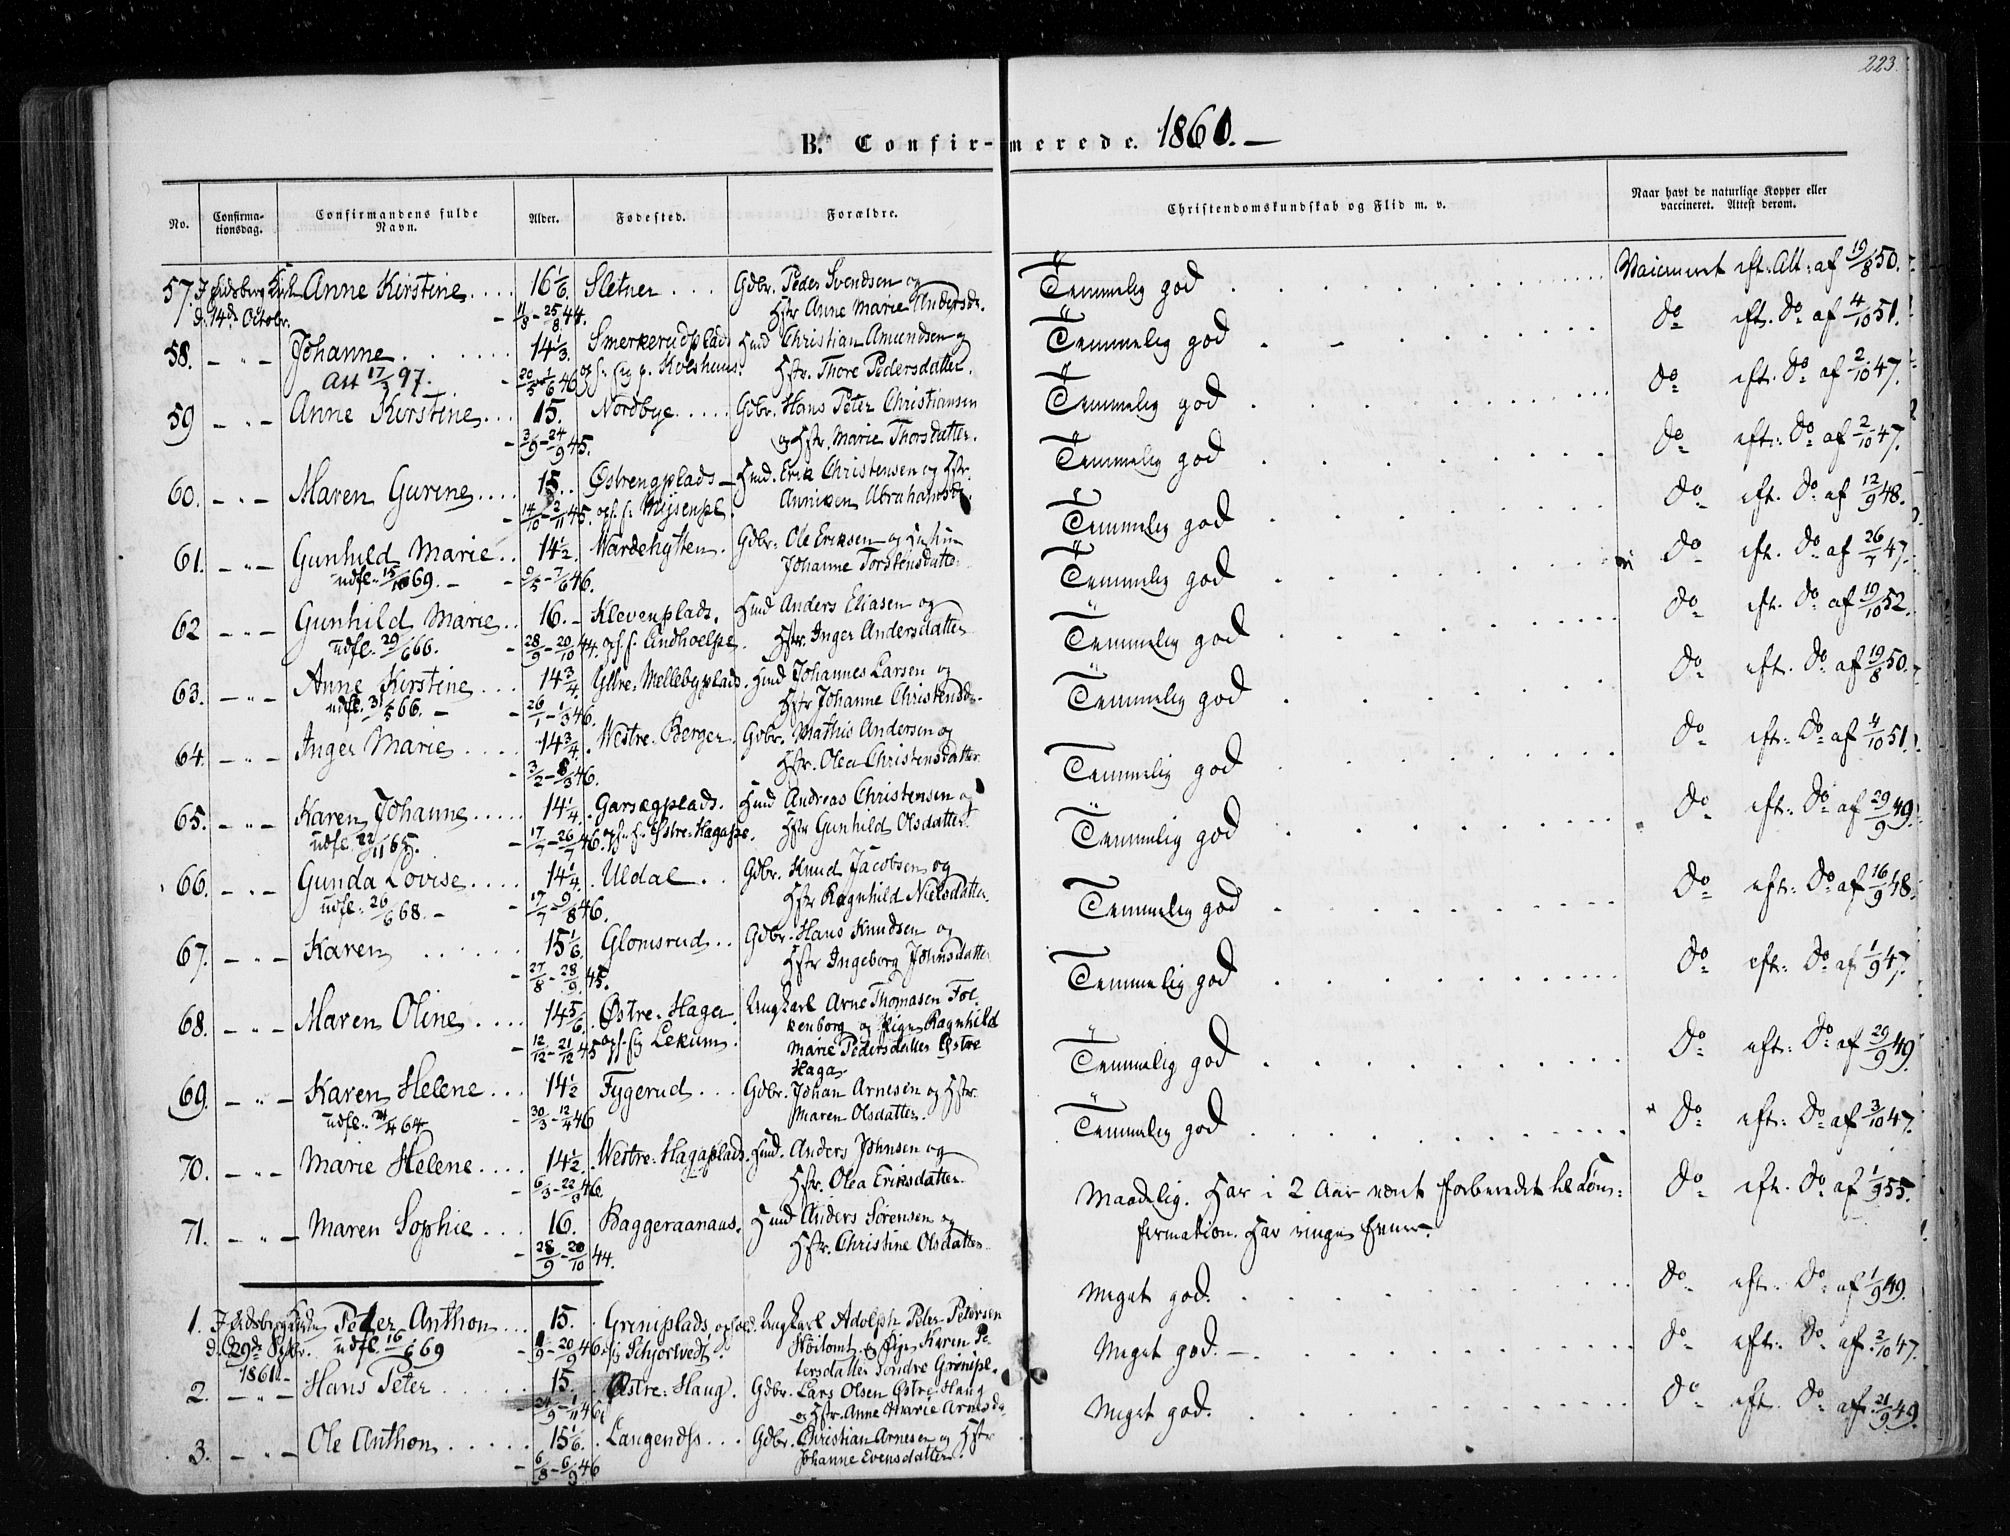 223.
B. Confir-merede. 1860.
No.
Confirma-tionsdag.
Confirmandens fulde Navn.
Alder.
Fødested.
Forældre.
Christendomskundskab og Flid m. v.
Naar havt de naturlige Kopper eller vaccineret. Attest derom.
57. I Eidsberg Kirke Anne Kirstine 16 1/6. Sletner Gdbr. Peder Svendsen og Temmelig god Vaccineret eft. Att. af 19/8 50.
d. 14de Octobr. 11/8 - 25/8 44. Hstr. Anne Marie Andersdr.
58. - " - Johanne 14 1/3. Smerkerudplads Hmd Christian Amundsen og Temmelig god do eft. do af 4/10 51.
Att 17/3 97. 20/5 - 1/6 46 Hstr. Thore Pedersdatter.
59 - " - Anne Kirstine 15. Nordbye Gdbr. Hans Peter Christiansen Temmelig god do eft. do af 2/10 47.
3/9 - 24/9 45. og Hstr. Marie Thorsdatter.
60. - " - Maren Gurine 15. Østrengplads Hmd. Erik Christensen og Hstr. Temmelig god do eft. do af 2/10 47.
14/10 - 2/11 45. ops. p. Mysenpl. Anniken Abrahamsdr.
61. - " - Gunhild Marie 14 1/2. Wardehytten. Gdbr. Ole Eriksen og Hustru Temmelig god do eft. do af 12/9 48.
udfl. 15/10 69. 9/5 - 7/6 46. Johanne Torstensdatter
62 - " - Gunhild Marie 16. Klevenplads. Hmd Anders Eliasen og Temmelig god do eft. do af 26/7 47.
udfl. 29/6 66. 28/9 - 20/10 44. ops. p. Lindhoelpl. Hstr. Inger Andersdatter
63. - " - Anne Kirstine 14 3/4 Yttre Mellebyplads. Hmd Johannes Larsen og Temmelig god do eft. do af 19/10 52.
udfl. 31/5 66. 26/1 - 1/3 46. Hstr Johanne Christensdr.
64. - " - Inger Marie 14 3/4. Westre Berger. Gdbr. Mathis Andersen og Temmelig god do eft. do af 19/8 50.
3/2 - 8/3 46. Hstr. Olea Christensdatter
65. - " - Karen Johanne 14 1/4. Garsegplads. Hmd Andreas Christensen og Temmelig god do eft. do af 4/10 51.
udfl. 22/11 65. 17/7 - 26/7 46. ops. p. Østre Hagapl. Hstr Gunhild Olsdatter.
66. - " - Gunda Lovise 14 1/4. Uldal Gdbr. Knud Jacobsen og Temmelig god do eft. do af 29/9 49.
udfl. 26/6 68. 17/7 - 9/8 46. Hstr Ragnhild Nielsdatter
67. - " - Karen 15 1/6. Glomsrud Gdbr. Hans Knudsen og Temmelig god do eft. do af 16/9 48.
27/8 - 28/9 45. Hstr Ingeborg Johnsdatter
68. - " - Maren Oline 14 5/6. Østre Haga Ungkarl Arne Thomasen Fol- Temmelig god do eft. do af 1/9 47.
12/12 - 21/12 45 Lekum. kenborg og Pige Ragnhild
Marie Pedersdatter Østre
Haga
69. - " - Karen Helene 14 1/2 Tygerud Gdbr. Johan Arnesen og Hstr. Temmelig god do eft. do af 29/9 49
udfl. 21/4 64 30/3 - 12/4 46 Maren Olsdatter.
70. - " - Marie Helene 14 1/2. Westre Hagaplads. Hmd. Anders Johnsen og Temmelig god do eft. do af 3/10 47.
6/3 - 22/3 46. Hstr. Olea Eriksdatter
71. - " - Maren Sophie 16. Baggeraanaas. Hmd Anders Sørensen og Maadelig. Har i 2 Aar været forberedet til Con- do eft. do af 1/9 55.
28/9 - 20/10 44. Hstr. Christine Olsdatter firmation. Har ringe Evner.
1. I Eidsberg Kirke Peter Anthon 15. Greniplads, Ungkarl Adolph Peter Petersen Meget god. do eft. do af 1/9 49.
d. 29de Sptbr. udfl. 16/6 69 1/9 - 20/9 46. Schjorvedt. Høitomt og Pige Karen Pe-
1861 tersdatter Søndre Grønipl.
2. - " - Hans Peter 15. Østre Haug. Gdbr. Lars Olsen Østre Haug Meget god. do eft. do af 2/10 47.
24/9 - 1/11 46 og Hstr. Anne Marie Arnesdr
3. - " - Ole Anthon 15 1/6. Langenæs Gdbr. Christian Arnesen og Hstr Meget god. do eft. do af 21/9 49.
6/8 - 6/9 46 Johanne Evensdatter.